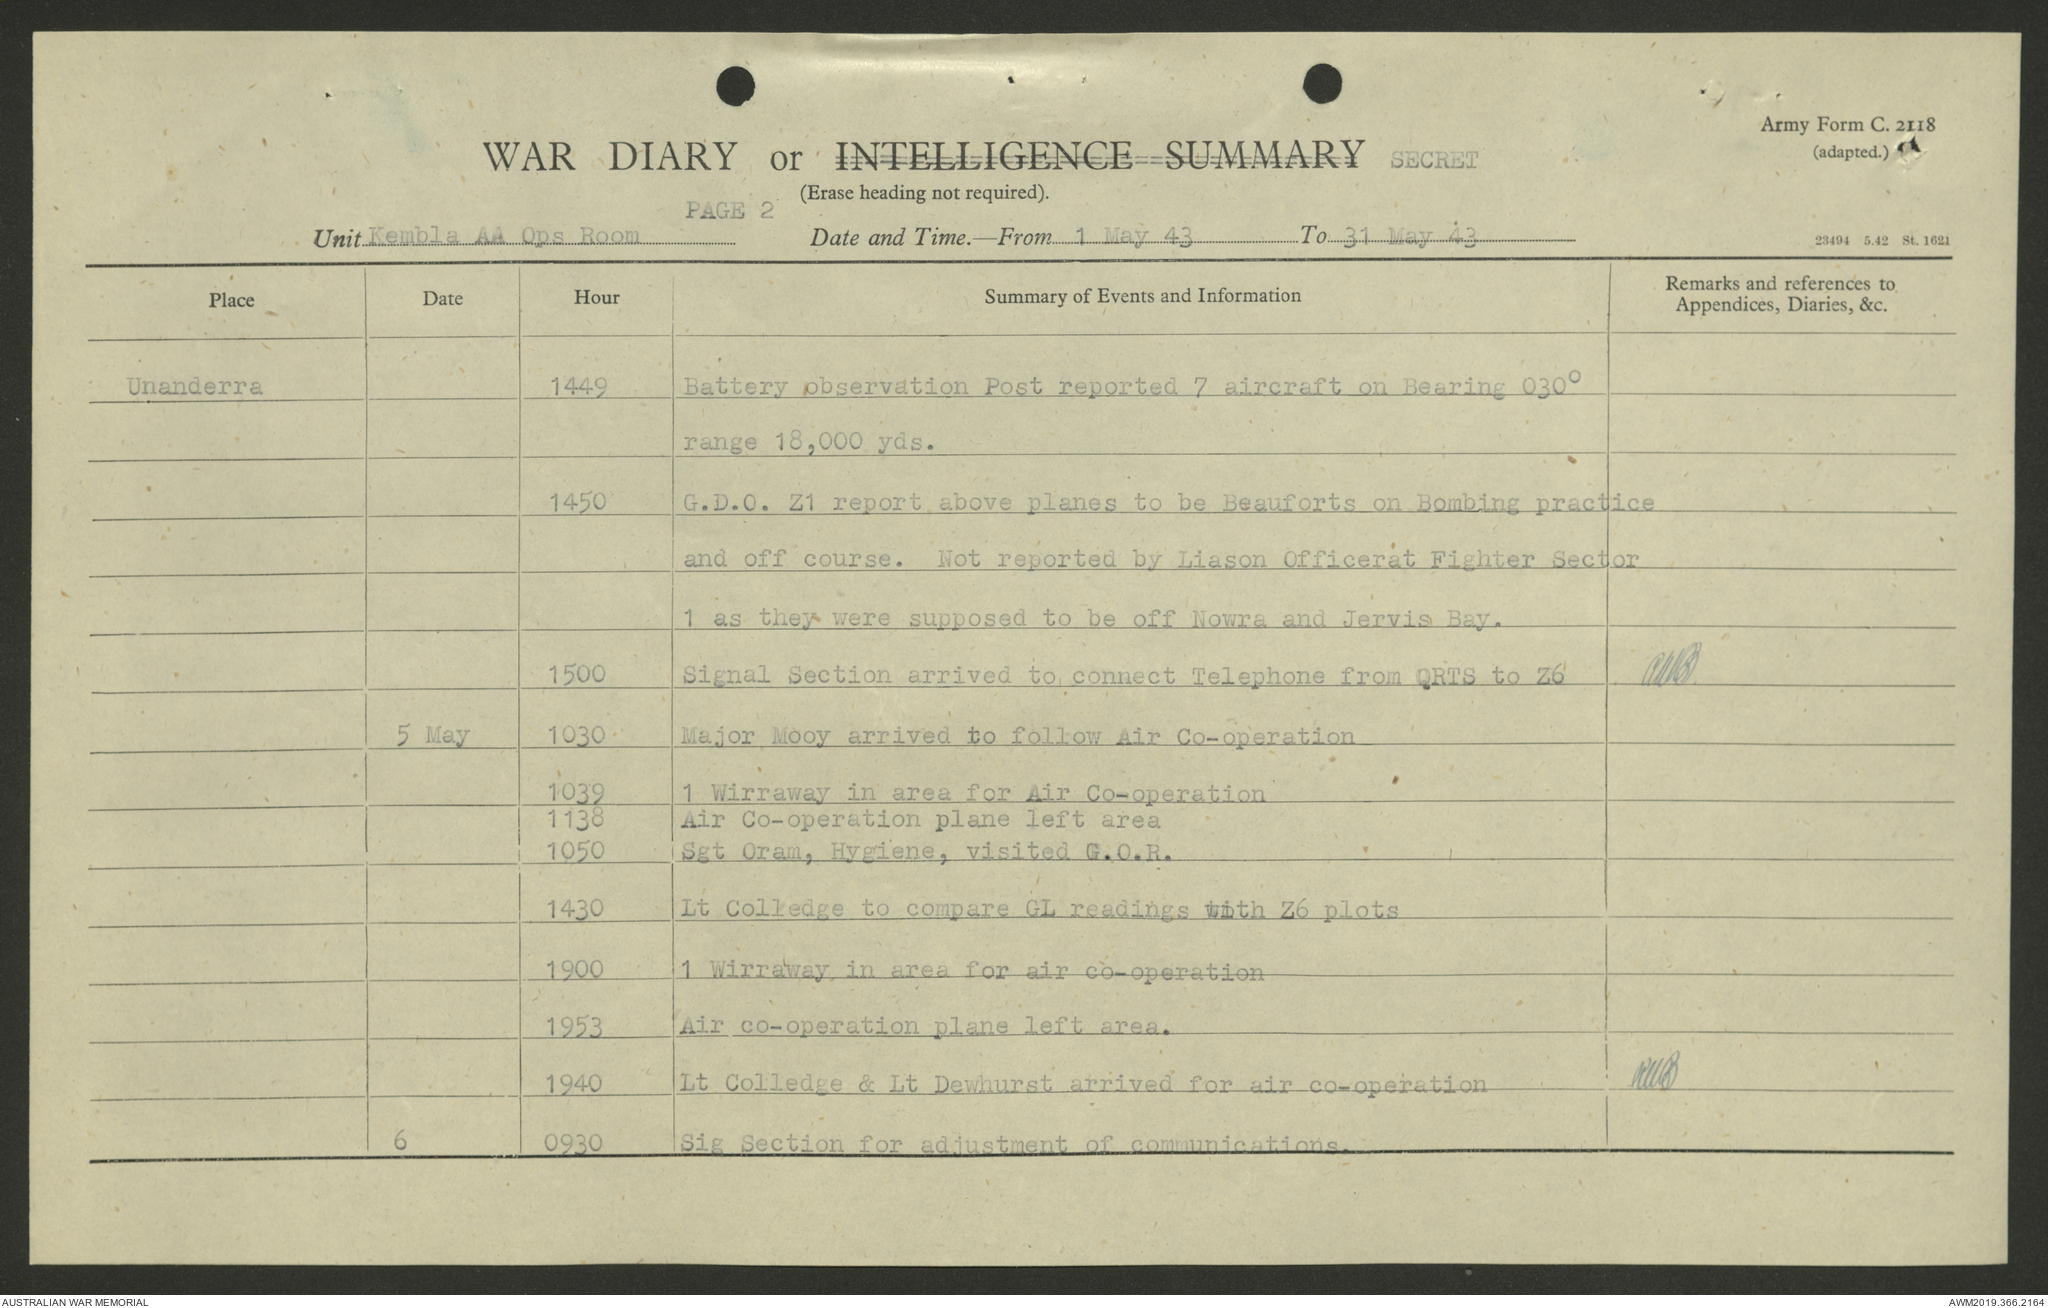 Army Form C. 2118
(adapted.)
WAR DIARY or INTELLIGENCE SUMMARY SECRET
(Erase heading not required).
PAGE 2
Unit Kembla AA Ops Room Date and Time.—From 1 May 43 To 31 May 43
23494 5.42 St. 1621
Place Date Hour Summary of Events and Information Remarks and references to
Appendices, Diaries, &c.
Unanderra 1449 Battery observation Post reported 7 aircraft on Bearing 030°
range 18,000 yds.
1450 G.D.O. Z1 report above planes to be Beauforts on Bombing practice
and off course. Not reported by Liason Officerat Fighter Sector
1 as they were supposed to be off Nowra and Jervis Bay.
1500 Signal Section arrived to connect Telephone from QRTS to Z6
5 May 1030 Major Mooy arrived to follow Air Co-operation
1039 1 Wirraway in area for Air Co-operation
1138 Air Co-operation plane left area
1050 Sgt Oram, Hygiene, visited G.O.R.
1430 Lt Colledge to compare GL readings with Z6 plots
1900 1 Wirraway in area for air co-operation
1953 Air co-operation plane left area.
1940 Lt Colledge & Lt Dewhurst arrived for air co-operation
6 0930 Sig Section for adjustment of communications.
AUSTRALIAN WAR MEMORIAL AWM2019.366.2164